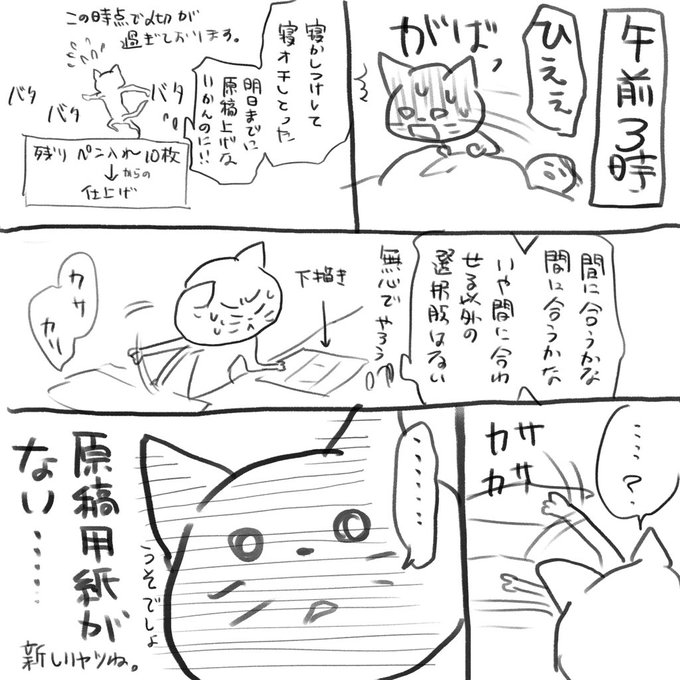 午前3時
ひええ
がばっ
寝かしつけして
寝オチしとった
明日までに
原稿上げな
いかんのに!!
この時点で〆切が
過ぎております。
バタ
バタ
バタ
残り ペン入れ10枚
↓からの
仕上げ
間に合うかな
間に合うかな
いや間に合わ
せる以外の
選択肢はない
無心でやろう
下描き
カサ
カサ
‥‥?
カサ
カサ
‥‥‥‥
うそでしょ
原稿用紙が
ない‥‥‥
新しいヤツね。